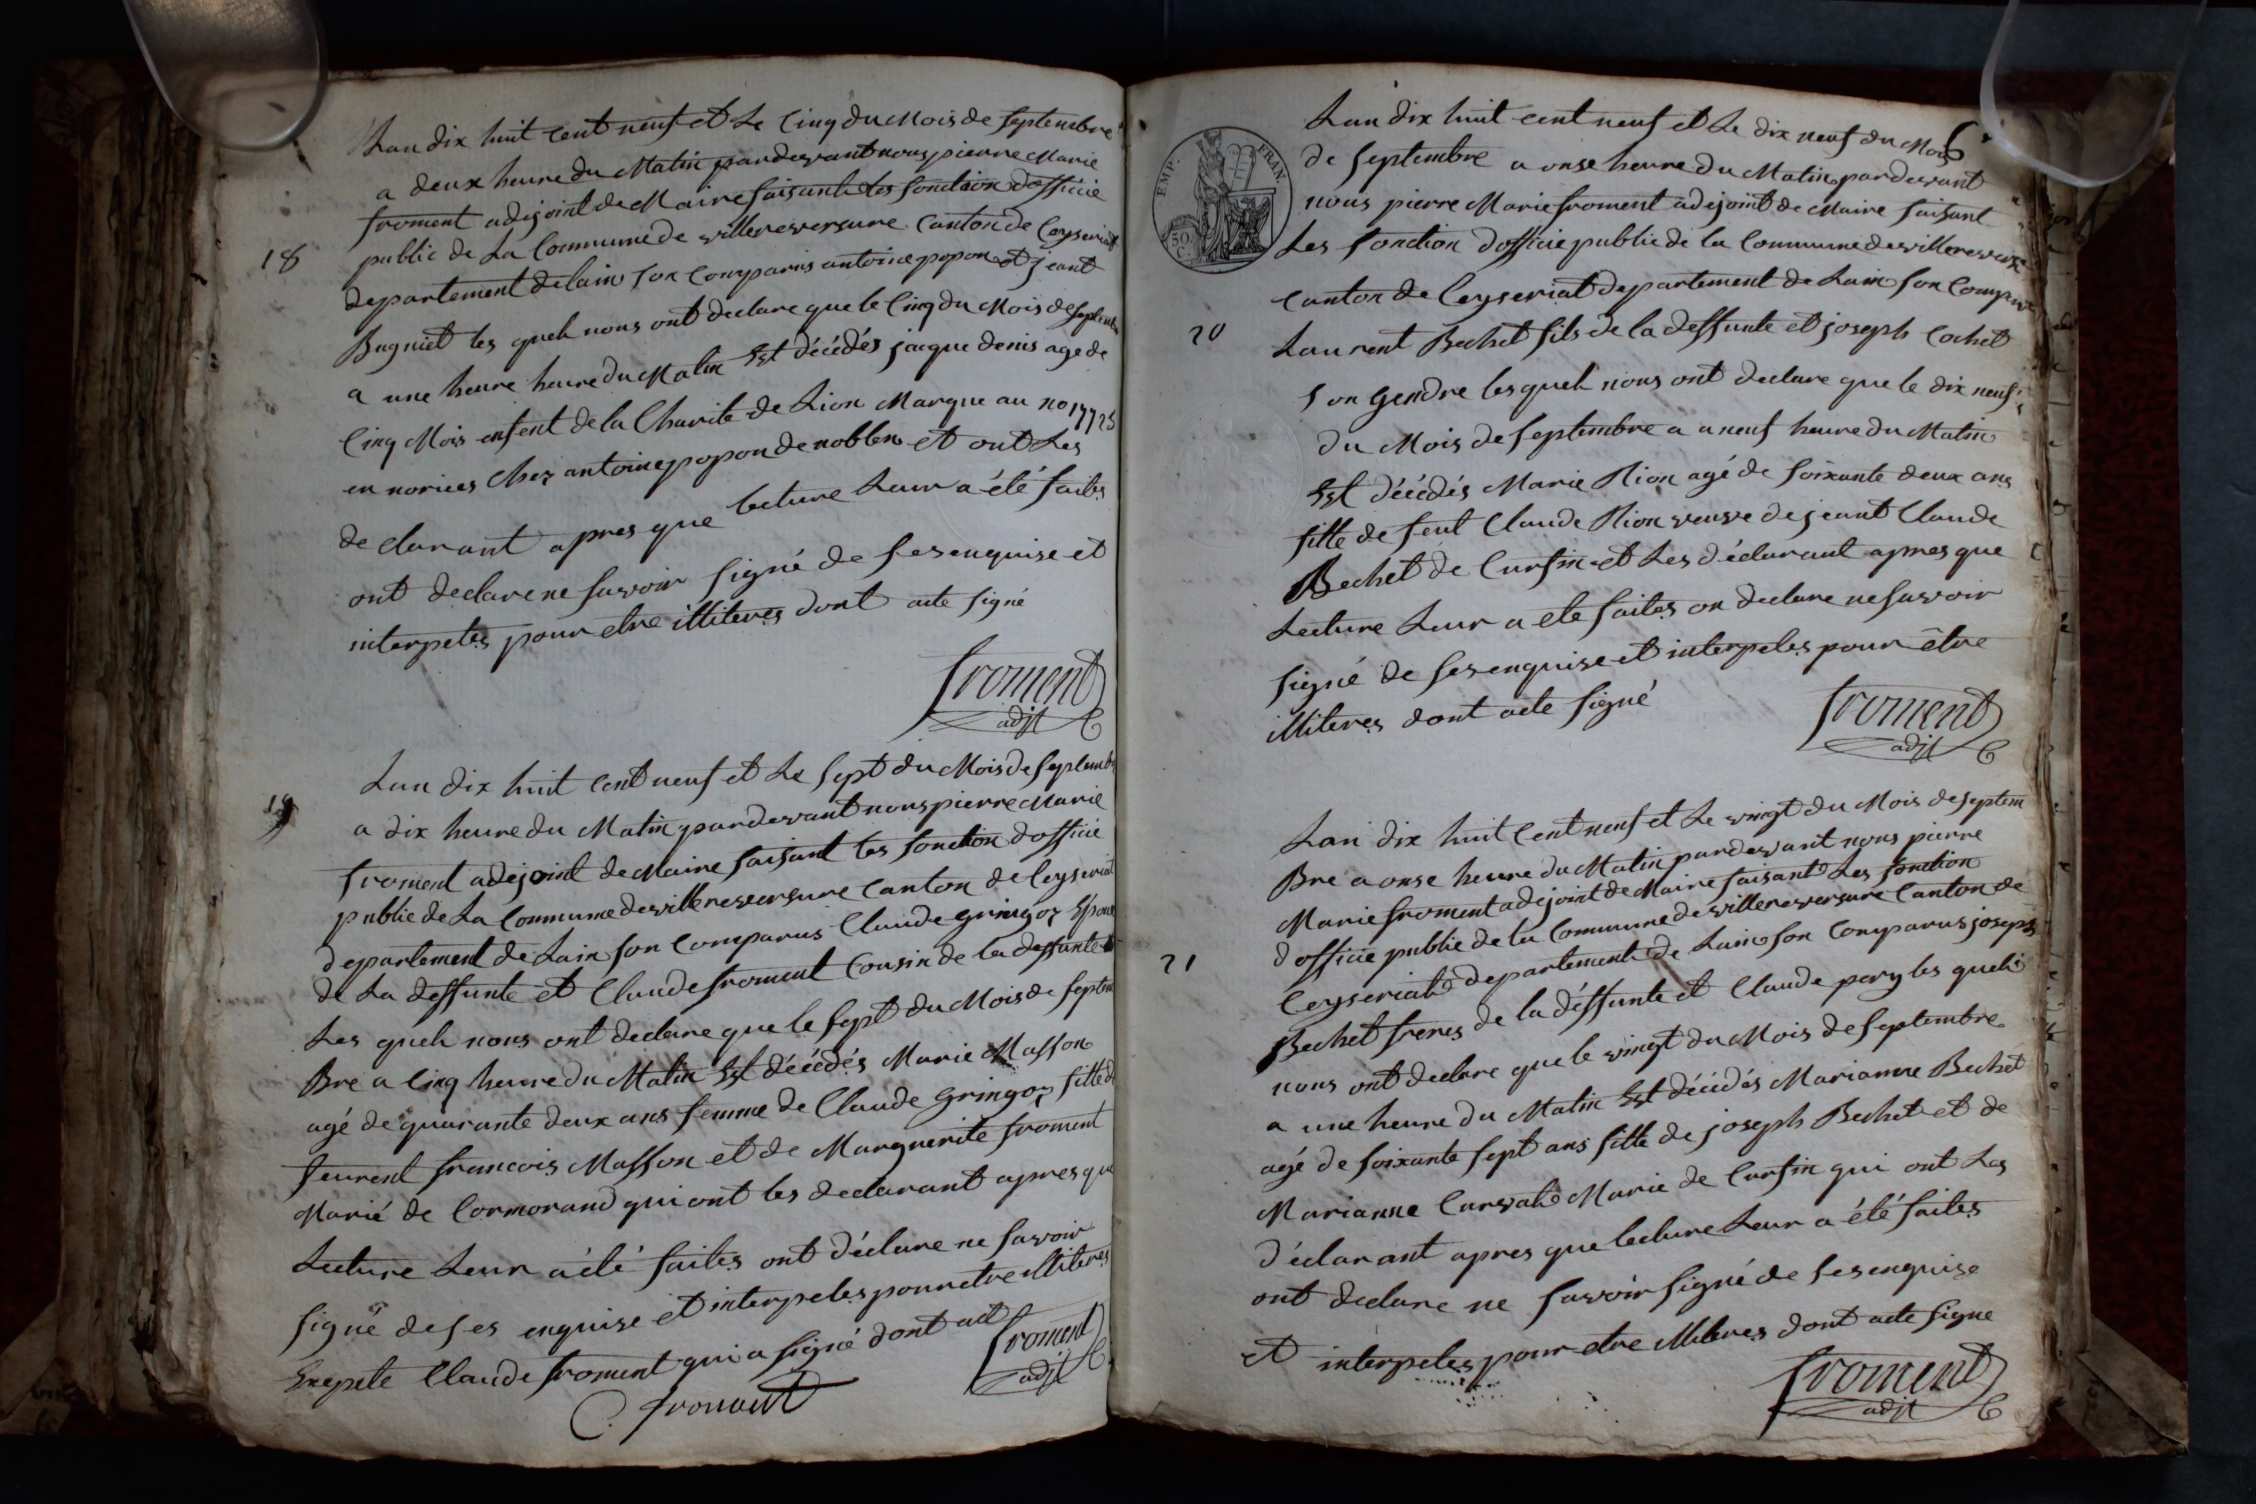 Lan dix huit cent neuf et Le Cinq du Mois de Septembre
a deux heure du Matin pardevant nous pierre Marie
froment adejoint de Maire faisant les fonction dofficie
18
public de La Commune de villereversure Canton de Ceyseriat
departement delain son Comparus antoine popon et jeant
Bugniet les queh nous ont declare que le Cinq du Mois de Septembr
a une heure heure du Matin Est décédés jacque denis age de
Cinq Mois enfent de la Charite de Lion Marque au no 17725
en norices Chez antoine popon de noblens et ont Les
declarant apres que lecture Leur a été faites
ont declare ne savoir signé de ses enquise et
interpeles pour etre illiteres dont acte signé
froment
adjt
Lan dix huit Cent neuf et Le Sept du Mois de Septemb
19
a dix heure du Matin pardevant nous pierre Marie
froment adejoint de Maire faisant les fonction dofficie
public de La Commune de villereversure Canton de Ceyseriat
departement de Lain son Comparus Claude gringoz Epoux
de La deffunte et Claude froment Cousin de la deffunte
Les queh nous ont declare que le Sept du Mois de Septem
Bre a Cinq heure du Matin Est décédés Marie Masson
agé de quarante deux ans femme de Claude gringoz fille de
feurent francois Masson et de Marguerite froment
Marié de Cormorand qui ont les declarant apres que
Lecture Leur a été faites ont déclare ne savoir
signé de ses enquise et interpeles pour etre illiteres
Exepte Claude froment qui a signé dont act
froment
adjt
C. froment
Lan dix huit cent neuf et Le dix neuf du Mois
6
EMP. FRAN.
50 C.
de Septembre a onse heure du Matin pardevant
nous pierre Marie froment adejoint de Maire faisant
Les fonction dofficie public de la Commune de villereversure
Canton de Ceyseriat departement de Lain son Comparus
20
Laurent Bechet fils de la deffunte et joseph Cochet
son gendre les queh nous ont declare que le dix neuf
du Mois de Septembre a a neuf heure du Matin
Est décédés Marie Nion agé de soixante deux ans
fille de feut Claude Nion veuve de jeant Claude
Bechet de Curfin et Les déclarant apres que
Lecture Leur a ete faites on declare ne savoir
signé de ses enquise et interpeles pour être
illiteres dont acte signé
froment
adjt
Lan dix huit Cent neuf et Le vingt du Mois de Septem
Bre a onse heure du Matin pardevant nous pierre
Marie froment adejoint de Maire faisant Les fonction
dofficie public de la Commune de villereversure Canton de
21
Ceyseriat departement de Lain son Comparus joseph
Bechet freres de la déffunte et Claude pery les queh
nous ont declare que le vingt du Mois de Septembre
a une heure du Matin Est décédés Marianne Bechet
agé de soixante sept ans fille de joseph Bechet et de
Marianne Carvat Marie de Curfin qui ont Les
déclarant apres que lecture Leur a été faites
ont declare ne savoir signé de ses enquise
et interpeles pour etre illiteres dont acte signe
froment
adjt